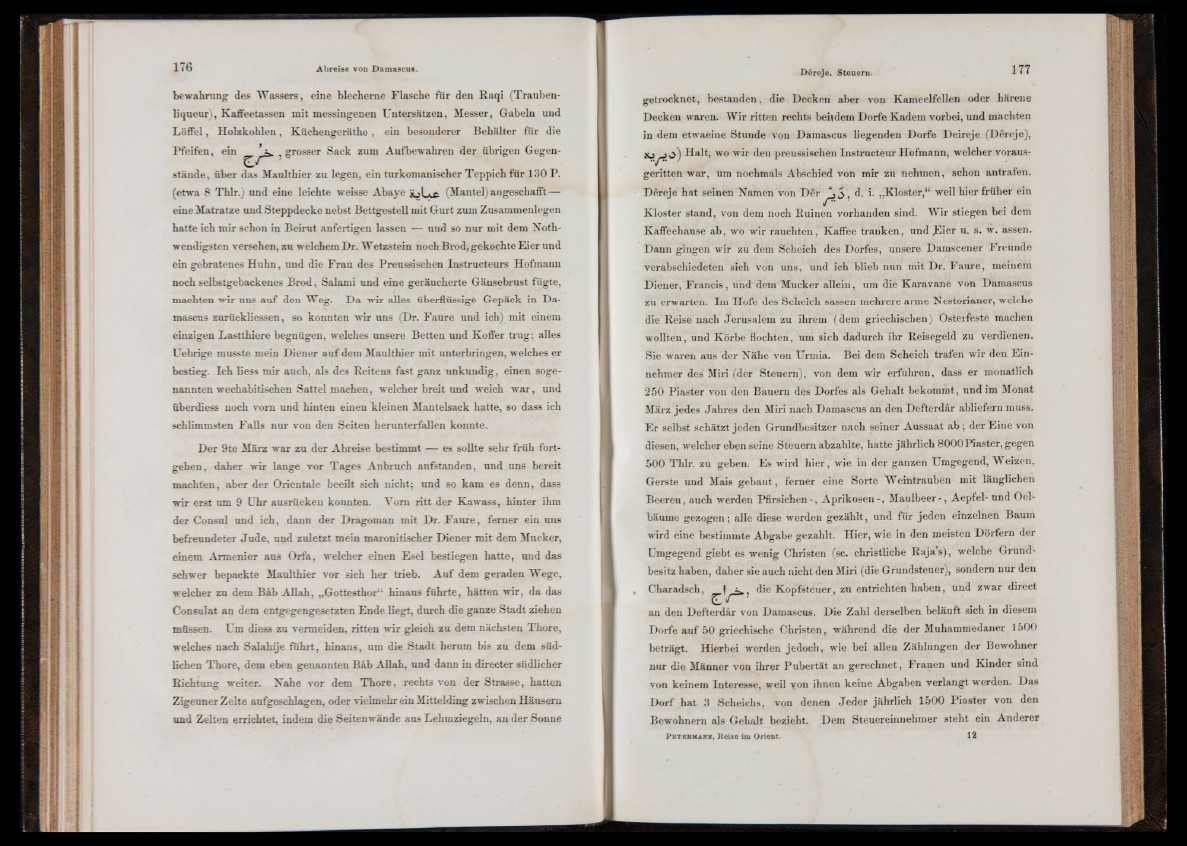 176
Abreise von Damascus.
bewahrung des Wassers, eine blecherne Flasche für den Raqi (Trauben-
liqueur), Kaffeetassen mit messingenen Untersätzen, Messer, Gabeln und
Löffel, Holzkohlen, Küchengeräthe, ein besonderer Behälter für die
Pfeifen, ein خرج, grosser Sack zum Aufbewahren der übrigen Gegen-
stände, über das Maulthier zu legen, ein turkomanischer Teppich für 130 P.
(etwa 8 Thlr.) und eine leichte weisse Abaye عباية (Mantel) angeschafft —
eine Matratze und Steppdecke nebst Bettgestell mit Gurt zum Zusammenlegen
hatte ich mir schon in Beirut anfertigen lassen — und so nur mit dem Noth-
wendigsten versehen, zu welchem Dr. Wetzstein noch Brod, gekochte Eier und
ein gebratenes Huhn, und die Frau des Preussischen Instructeurs Hofmann
noch selbstgebackenes Brod, Salami und eine geräucherte Gänsebrust fügte,
machten wir uns auf den Weg. Da wir alles überflüssige Gepäck in Da-
mascus zurückliessen, so konnten wir uns (Dr. Faure und ich) mit einem
einzigen Lastthiere begnügen, welches unsere Betten und Koffer trug; alles
Uebrige musste mein Diener auf dem Maulthier mit unterbringen, welches er
bestieg. Ich liess mir auch, als des Reitens fast ganz unkundig, einen soge-
nannten wechabitischen Sattel machen, welcher breit und weich war, und
überdiess noch vorn und hinten einen kleinen Mantelsack hatte, so dass ich
schlimmsten Falls nur von den Seiten herunterfallen konnte.
Der 9te März war zu der Abreise bestimmt — es sollte sehr früh fort-
gehen, daher wir lange vor Tages Anbruch aufstanden, und uns bereit
machten, aber der Orientale beeilt sich nicht; und so kam es denn, dass
wir erst um 9 Uhr ausrücken konnten. Vorn ritt der Kawass, hinter ihm
der Consul und ich, dann der Dragoman mit Dr. Faure, ferner ein uns
befreundeter Jude, und zuletzt mein maronitischer Diener mit dem Mucker,
einem Armenier aus Orfa, welcher einen Esel bestiegen hatte, und das
schwer bepackte Maulthier vor sich her trieb. Auf dem geraden Wege,
welcher zu dem Bâb Allah, „Gottesthor“ hinaus führte, hätten wir, da das
Consulat an dem entgegengesetzten Ende liegt, durch die ganze Stadt ziehen
müssen. Um diess zu vermeiden, ritten wir gleich zu dem nächsten Thore,
welches nach Salahîje führt, hinaus, um die Stadt herum bis zu dem süd-
lichen Thore, dem eben genannten Bâb Allah, und dann in directer südlicher
Richtung weiter. Nahe vor dem Thore, rechts von der Strasse, hatten
Zigeuner Zelte aufgeschlagen, oder vielmehr ein Mittelding zwischen Häusern
und Zelten errichtet, indem die Seitenwände aus Lehmziegeln, an der Sonne
Dêreje. Steuern.
177
getrocknet, bestanden, die Decken aber von Kameelfellen oder härene
Decken waren. Wir ritten rechts bei dem Dorfe Kadem vorbei, und machten
in dem etwa eine Stunde von Damascus liegenden Dorfe Deireje (Dêreje),
ديرية) Halt, wo wir den preussischen Instructeur Hofmann, welcher voraus-
geritten war, um nochmals Abschied von mir zu nehmen, schon antrafen.
Dêreje hat seinen Namen von Dêr دير, d. i. „Kloster,“ weil hier früher ein
Kloster stand, von dem noch Ruinen vorhanden sind. Wir stiegen bei dem
Kaffeehause ab, wo wir rauchten, Kaffee tranken, und Eier u. s. w. assen.
Dann gingen wir zu dem Scheich des Dorfes, unsere Damscener Freunde
verabschiedeten sich von uns, und ich blieb nun mit Dr. Faure, meinem
Diener, Francis, und dem Mucker allein, um die Karavane von Damascus
zu erwarten. Im Hofe des Scheich sassen mehrere arme Nestorianer, welche
die Reise nach Jerusalem zu ihrem (dem griechischen) Osterfeste machen
wollten, und Körbe flochten, um sich dadurch ihr Reisegeld zu verdienen.
Sie waren aus der Nähe von Urmia. Bei dem Scheich trafen wir den Ein-
nehmer des Miri (der Steuern), von dem wir erfuhren, dass er monatlich
250 Piaster von den Bauern des Dorfes als Gehalt bekommt, und im Monat
März jedes Jahres den Miri nach Damascus an den Defterdâr abliefern muss.
Er selbst schätzt jeden Grundbesitzer nach seiner Aussaat ab; der Eine von
diesen, welcher eben seine Steuern abzahlte, hatte jährlich 8000 Piaster, gegen
500 Thlr. zu geben. Es wird hier, wie in der ganzen Umgegend, Weizen,
Gerste und Mais gebaut, ferner eine Sorte Weintrauben mit länglichen
Beeren, auch werden Pfirsichen-, Aprikosen-, Maulbeer-, Aepfel- und Oel-
bäume gezogen; alle diese werden gezählt, und für jeden einzelnen Baum
wird eine bestimmte Abgabe gezahlt. Hier, wie in den meisten Dörfern der
Umgegend giebt es wenig Christen (sc. christliche Raja's), welche Grund-
besitz haben, daher sie auch nicht den Miri (die Grundsteuer), sondern nur den
Charadsch, خراج, die Kopfsteuer, zu entrichten haben, und zwar direct
an den Defterdâr von Damascus. Die Zahl derselben beläuft sich in diesem
Dorfe auf 50 griechische Christen, während die der Muhammedaner 1500
beträgt. Hierbei werden jedoch, wie bei allen Zählungen der Bewohner
nur die Männer von ihrer Pubertät an gerechnet, Frauen und Kinder sind
von keinem Interesse, weil von ihnen keine Abgaben verlangt werden. Das
Dorf hat 3 Scheichs, von denen Jeder jährlich 1500 Piaster von den
Bewohnern als Gehalt bezieht. Dem Steuereinnehmer steht ein Anderer
PETERMANN, Reise im Orient.
12